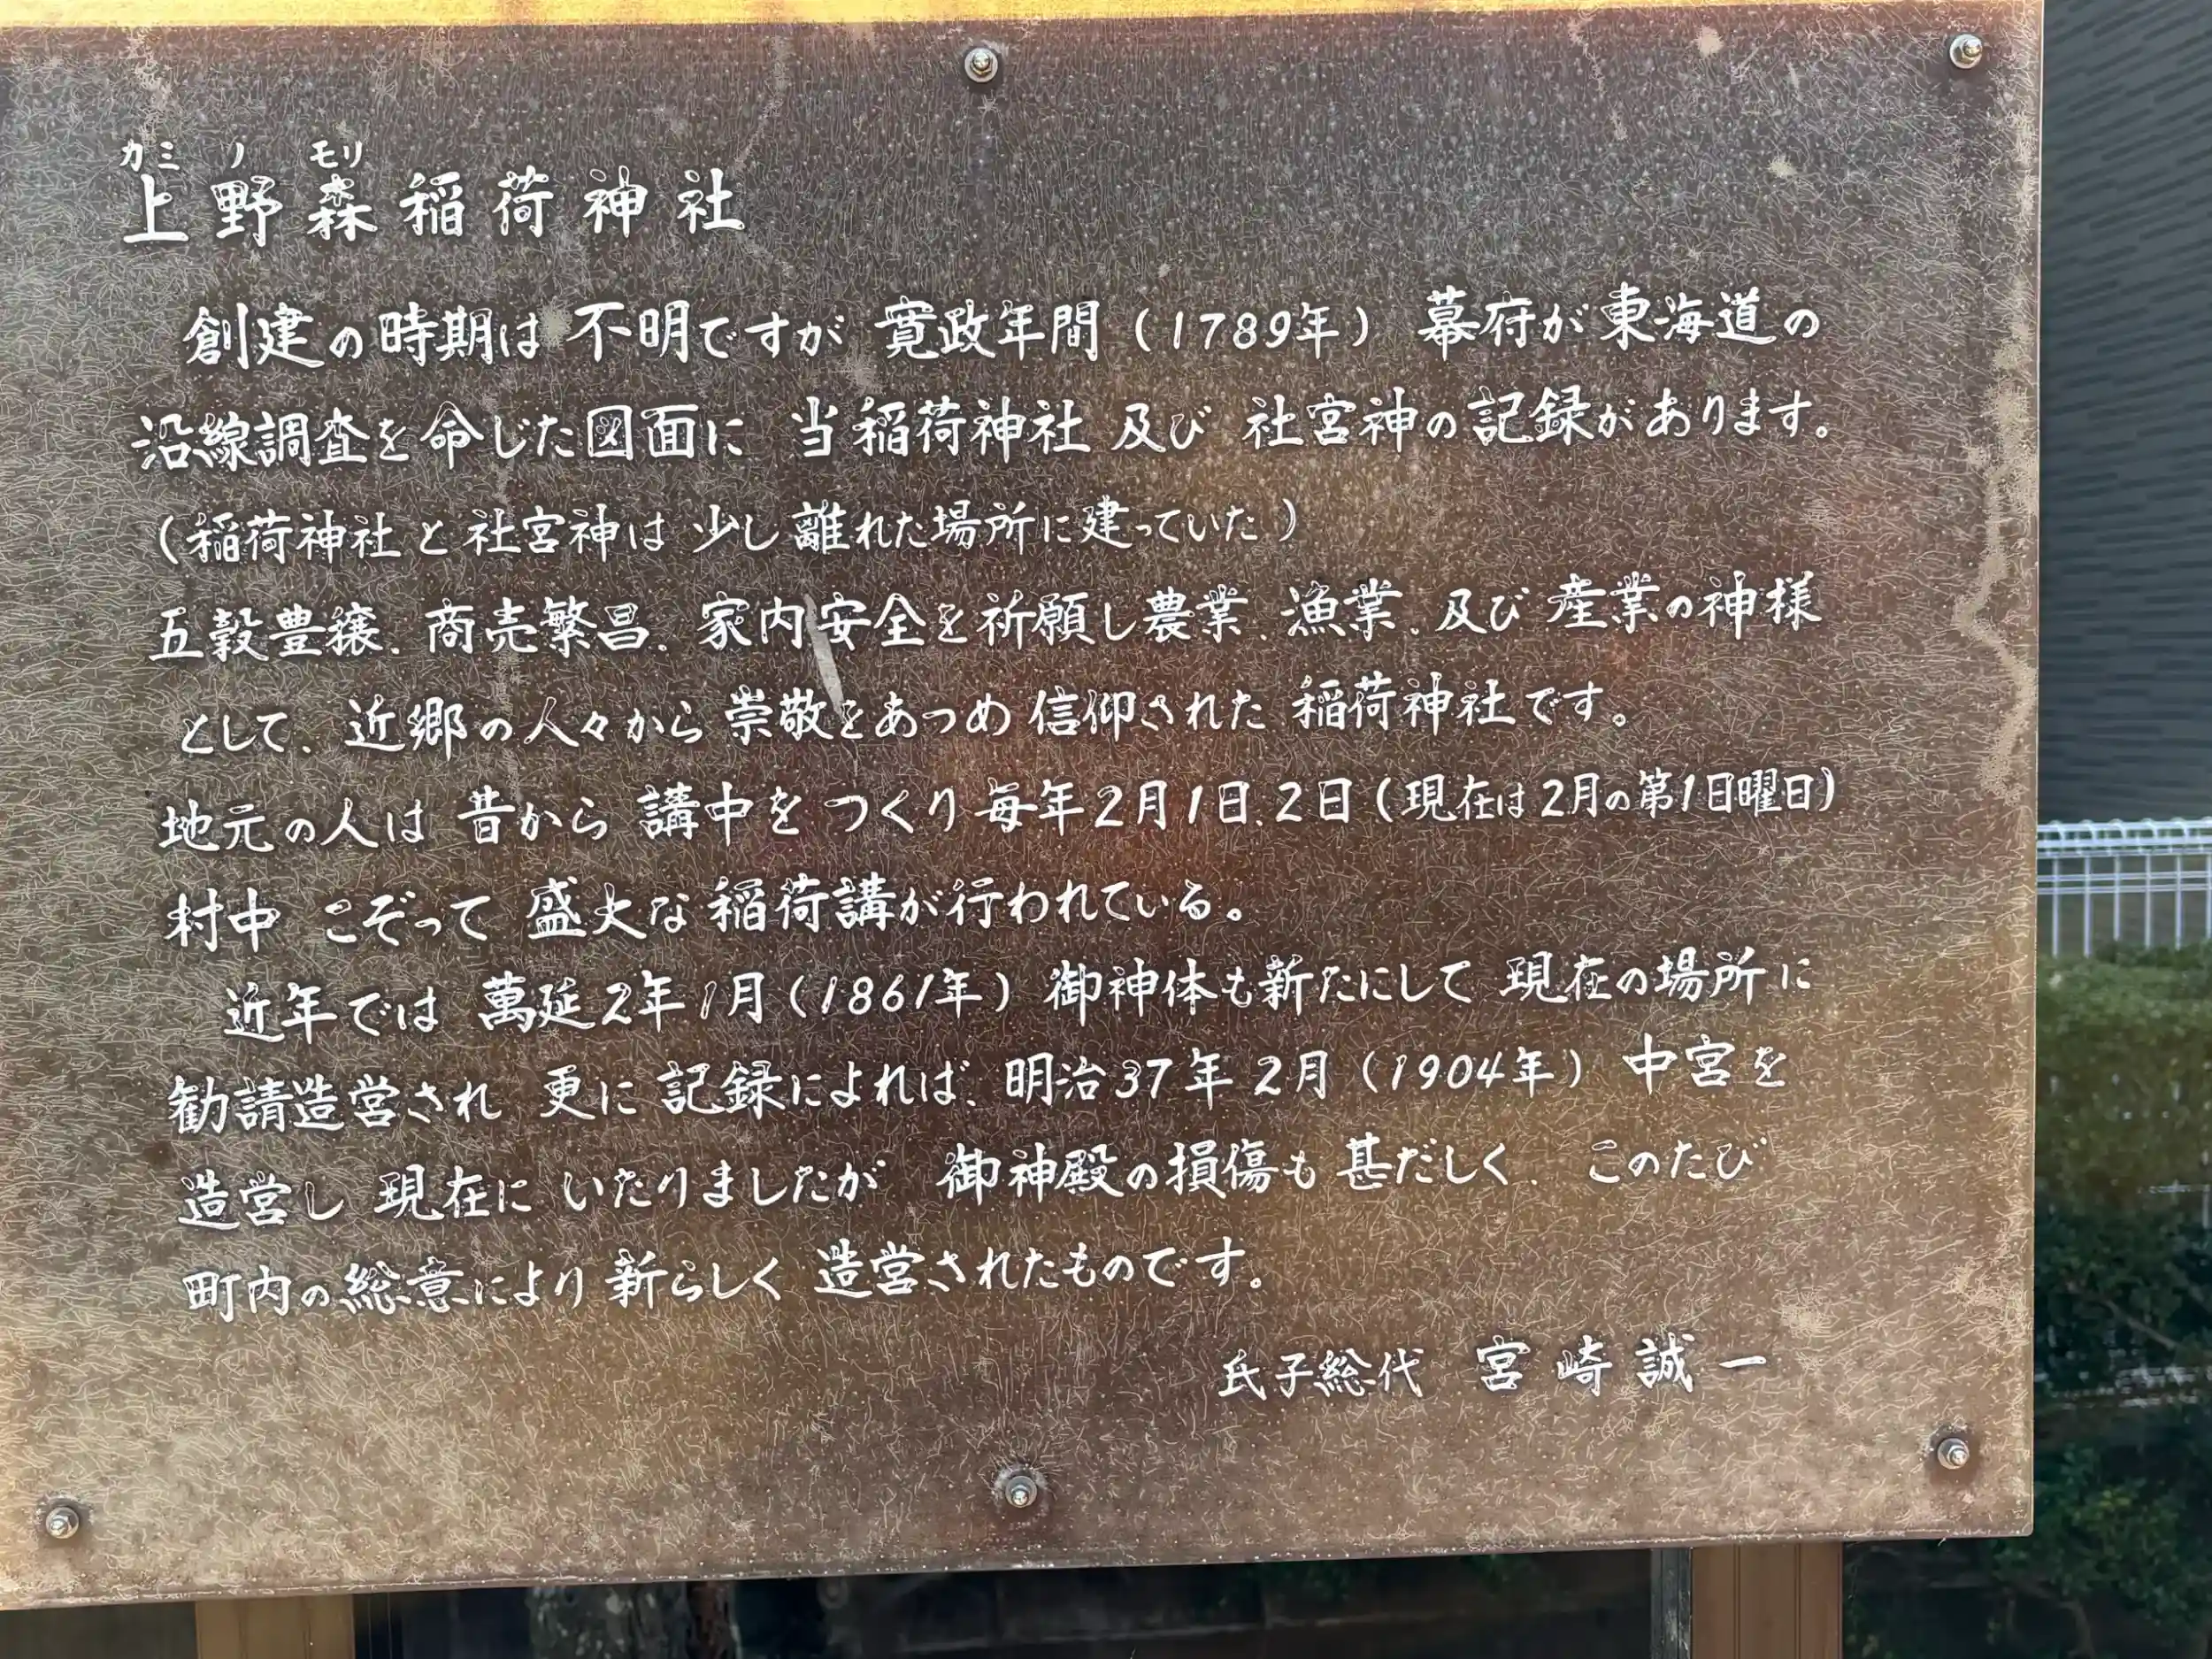 カミ ノ モリ
上野森稲荷神社
創建の時期は 不明ですが 寛政年間（1789年） 幕府が東海道の
沿線調査を命じた図面に 当稲荷神社 及び 社宮神の記録があります。
（稲荷神社と社宮神は 少し離れた場所に建っていた）
五穀豊穣、商売繁昌、家内安全を祈願し農業、漁業、及び 産業の神様
として、近郷の人々から崇敬をあつめ信仰された 稲荷神社です。
地元の人は 昔から 講中を つくり毎年2月1日、2日（現在は2月の第1日曜日）
村中 こぞって 盛大な稲荷講が行われている。
近年では 萬延2年1月（1861年） 御神体も新たにして 現在の場所に
勧請造営され 更に 記録によれば、明治37年2月（1904年） 中宮を
造営し 現在に いたりましたが 御神殿の損傷も甚だしく、 このたび
町内の総意により新らしく 造営されたものです。
氏子総代 宮崎誠一